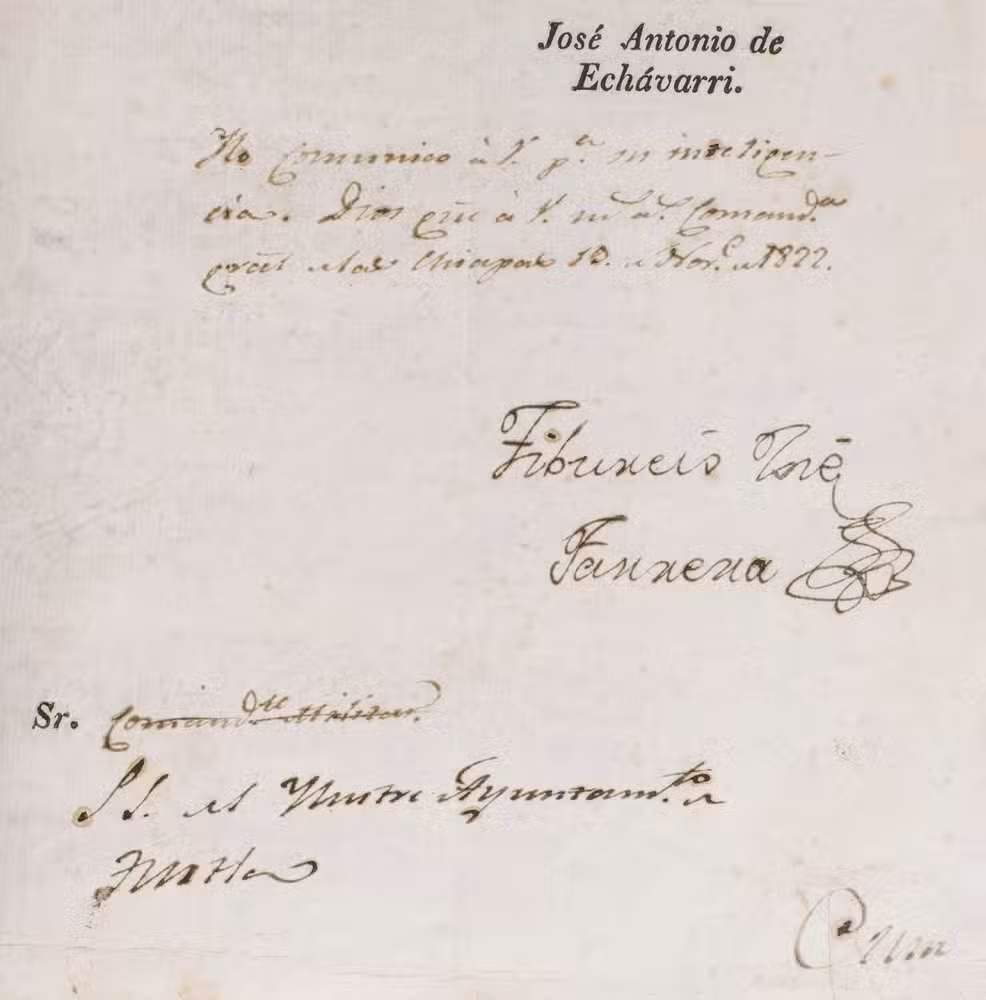 José Antonio de
Echávarri.
Lo comunico à V. pª. su inteligen-
cia. Dios gũe à V. mˢ aˢ. Comandª
gral de las Chiapas 12. de Novᵉ. de 1822.
Tiburcio José
Farrera
Sr. Comandᵗᵉ Militar.
SS. del Ilustre Ayuntamᵗᵒ. de
Tuxtla